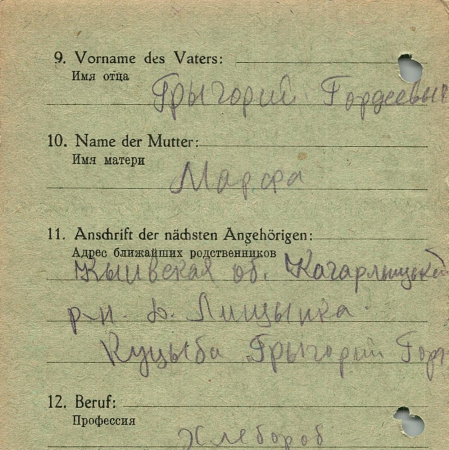 9. Vorname des Vaters:
Имя отца
Грыгорий Гордеевыч
10. Name der Mutter:
Имя матери
Марфа
11. Anschrift der nächsten Angehörigen:
Адрес ближайших родственников
Кыивская об. Кагарлыцькой
р-н.
Куцыба Грыгорий Горд
12. Beruf:
Профессия
Хлебороб